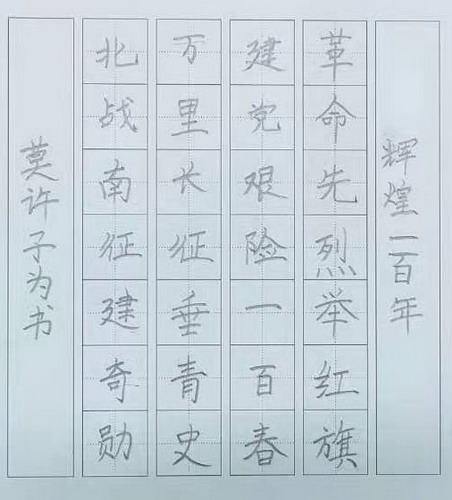 辉煌一百年
革命先烈举红旗
建党艰险一百春
万里长征垂青史
北战南征建奇勋
莫许子为书